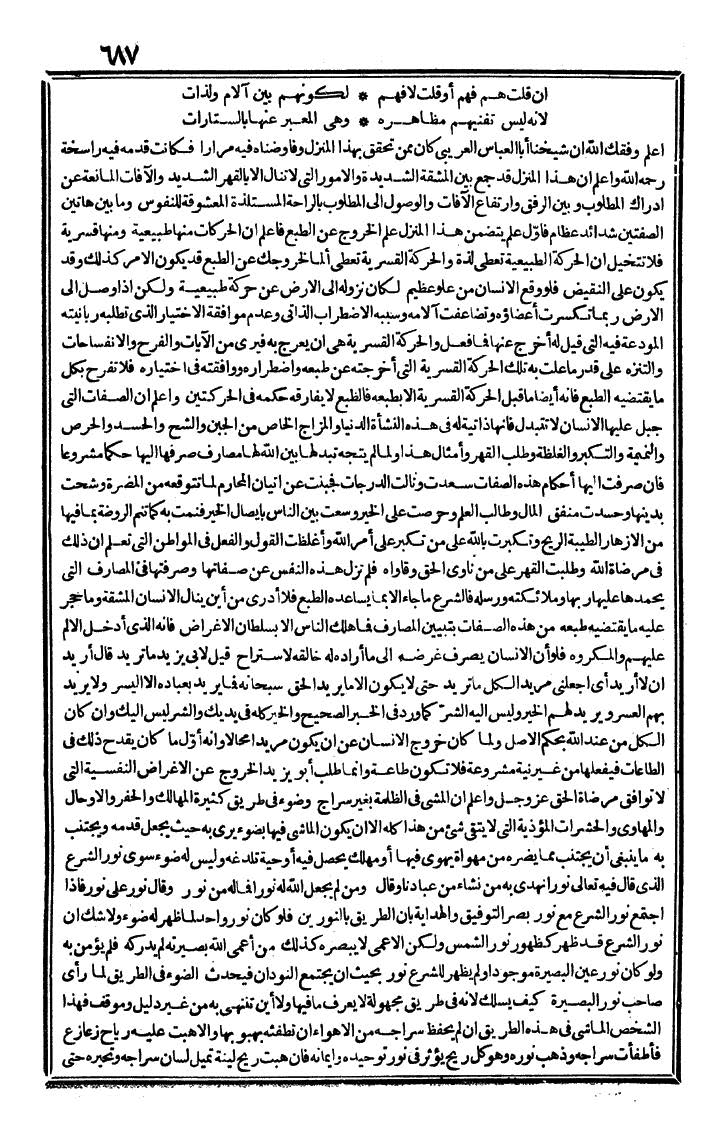 ٦٨٧
ان قلت هم فهم أو قلت لا فهم * لكونهم بين آلام ولذات
لانه ليس تفنيهم مظاهره * وهى المعبر عنها بالستارات
اعلم وفقك الله ان شيخنا أبا العباس العريبى كان ممن تحقق بهذا المنزل وفاوضناه فيه مرارا فكانت قدمه فيه راسخة
رحمه الله واعلم ان هذا المنزل قد جمع بين المشقة الشديدة والامور التى لا تنال الا بالقهر الشديد والآفات المانعة عن
ادراك المطلوب وبين الرفق وارتفاع الآفات والوصول الى المطلوب بالراحة المستلذة المعشوقة للنفوس وما بين هاتين
الصفتين شدائد عظام فاوّل علم يتضمن هذا المنزل علم الخروج عن الطبع فاعلم ان الحركات منها طبيعية ومنها قسرية
فلا تتخيل ان الحركة الطبيعية تعطى لذة والحركة القسرية تعطى ألما لخروجك عن الطبع قد يكون الامر كذلك وقد
يكون على النقيض فلو وقع الانسان من علو عظيم لكان نزوله الى الارض عن حركة طبيعية ولكن اذا وصل الى
الارض ربما تكسرت أعضاؤه وتضاعفت آلامه وسببه الاضطراب الذاتى وعدم موافقة الاختيار الذى تطلبه ربانيته
المودعة فيه التى قيل له أخرج عنها فما فعل والحركة القسرية هى ان يعرج به فيرى من الآيات والفرح والانفساحات
والتنزه على قدر ما علت به تلك الحركة القسرية التى أخرجته عن طبعه واضطراره ووافقته فى اختياره فلا تفرح بكل
ما يقتضيه الطبع فانه أيضا ما قبل الحركة القسرية الا بطبعه فالطبع لا يفارقه حكمه فى الحركتين واعلم ان الصفات التى
جبل عليها الانسان لا تتبدل فانها ذاتية له فى هذه النشأة الدنيا والمزاج الخاص من الجبن والشح والحسد والحرص
والنميمة والتكبر والغلظة وطلب القهر وأمثال هذا ولما لم يتجه تبدلها بين الله لها مصارف صرفها اليها حكما مشروعا
فان صرفت اليها أحكام هذه الصفات سعدت ونالت الدرجات فجبنت عن اتيان المحارم لما تتوقعه من المضرة وشحت
بدينها وحسدت منفق المال وطالب العلم وحرصت على الخير وسعت بين الناس بايصال الخير فنمت به كما تنم الروضة بما فيها
من الازهار الطيبة الريح وتكبرت بالله على من تكبر على أمر الله وأغلظت القول والفعل فى المواطن التى تعلم ان ذلك
فى مرضاة الله وطلبت القهر على من ناوى الحق وقاواه فلم تزل هذه النفس عن صفاتها وصرفتها فى المصارف التى
يحمدها عليها ربها وملائكته ورسله فالشرع ما جاء الا بما يساعده الطبع فلا أدرى من أين ينال الانسان المشقة وما حجر
عليه ما يقتضيه طبعه من هذه الصفات بتبيين المصارف فما هلك الناس الا بسلطان الاغراض فانه الذى أدخل الالم
عليهم والمكروه فلو أن الانسان يصرف غرضه الى ما أراده له خالقه لاستراح قيل لابى يزيد ما تريد قال أريد
ان لا أريد أى اجعلنى مريد الكل ما تريد حتى لا يكون الا ما يريد الحق سبحانه فما يريد بعباده الا اليسر ولا يريد
بهم العسر ويريد لهم الخير وليس اليه الشرّ كما ورد فى الخبر الصحيح والخير كله فى يديك والشر ليس اليك وان كان
الكل من عند الله بحكم الاصل ولما كان خروج الانسان عن ان يكون مريدا محالا وانه أوّل ما كان يقدح ذلك فى
الطاعات فيفعلها من غير نية مشروعة فلا تكون طاعة وانما طلب أبو يزيد الخروج عن الاغراض النفسية التى
لا توافق مرضاة الحق عز وجل واعلم ان المشى فى الظلمة بغير سراج وضوء فى طريق كثيرة المهالك والحفر والاوحال
والمهاوى والحشرات المؤذية التى لا يتقى شئ من هذا كله الا ان يكون الماشى فيها بضوء يرى به حيث يجعل قدمه ويجتنب
به ما ينبغى أن يجتنب مما يضره من مهواة يهوى فيها أو مهلك يحصل فيه أو حية تلدغه وليس له ضوء سوى نور الشرع
الذى قال فيه تعالى نورا نهدى به من نشاء من عبادنا وقال ومن لم يجعل الله له نورا فما له من نور وقال نور على نور فاذا
اجتمع نور الشرع مع نور بصر التوفيق والهداية بان الطريق بالنورين فلو كان نور واحد لما ظهر له ضوء ولا شك ان
نور الشرع قد ظهر كظهور نور الشمس ولكن الاعمى لا يبصره كذلك من أعمى الله بصيرته لم يدركه فلم يؤمن به
ولو كان نور عين البصيرة موجودا ولم يظهر للشرع نور بحيث ان يجتمع النوران فيحدث الضوء فى الطريق لما رأى
صاحب نور البصيرة كيف يسلك لانه فى طريق مجهولة لا يعرف ما فيها ولا أين تنتهى به من غير دليل وموقف فهذا
الشخص الماشى فى هذه الطريق ان لم يحفظ سراجه من الاهواء ان تطفئه بهبوبها والا هبت عليه رياح زعازع
فأطفأت سراجه وذهب نوره وهو كل ريح يؤثر فى نور توحيده وايمانه فان هبت ريح لينة تميل لسان سراجه وتحيره حتى